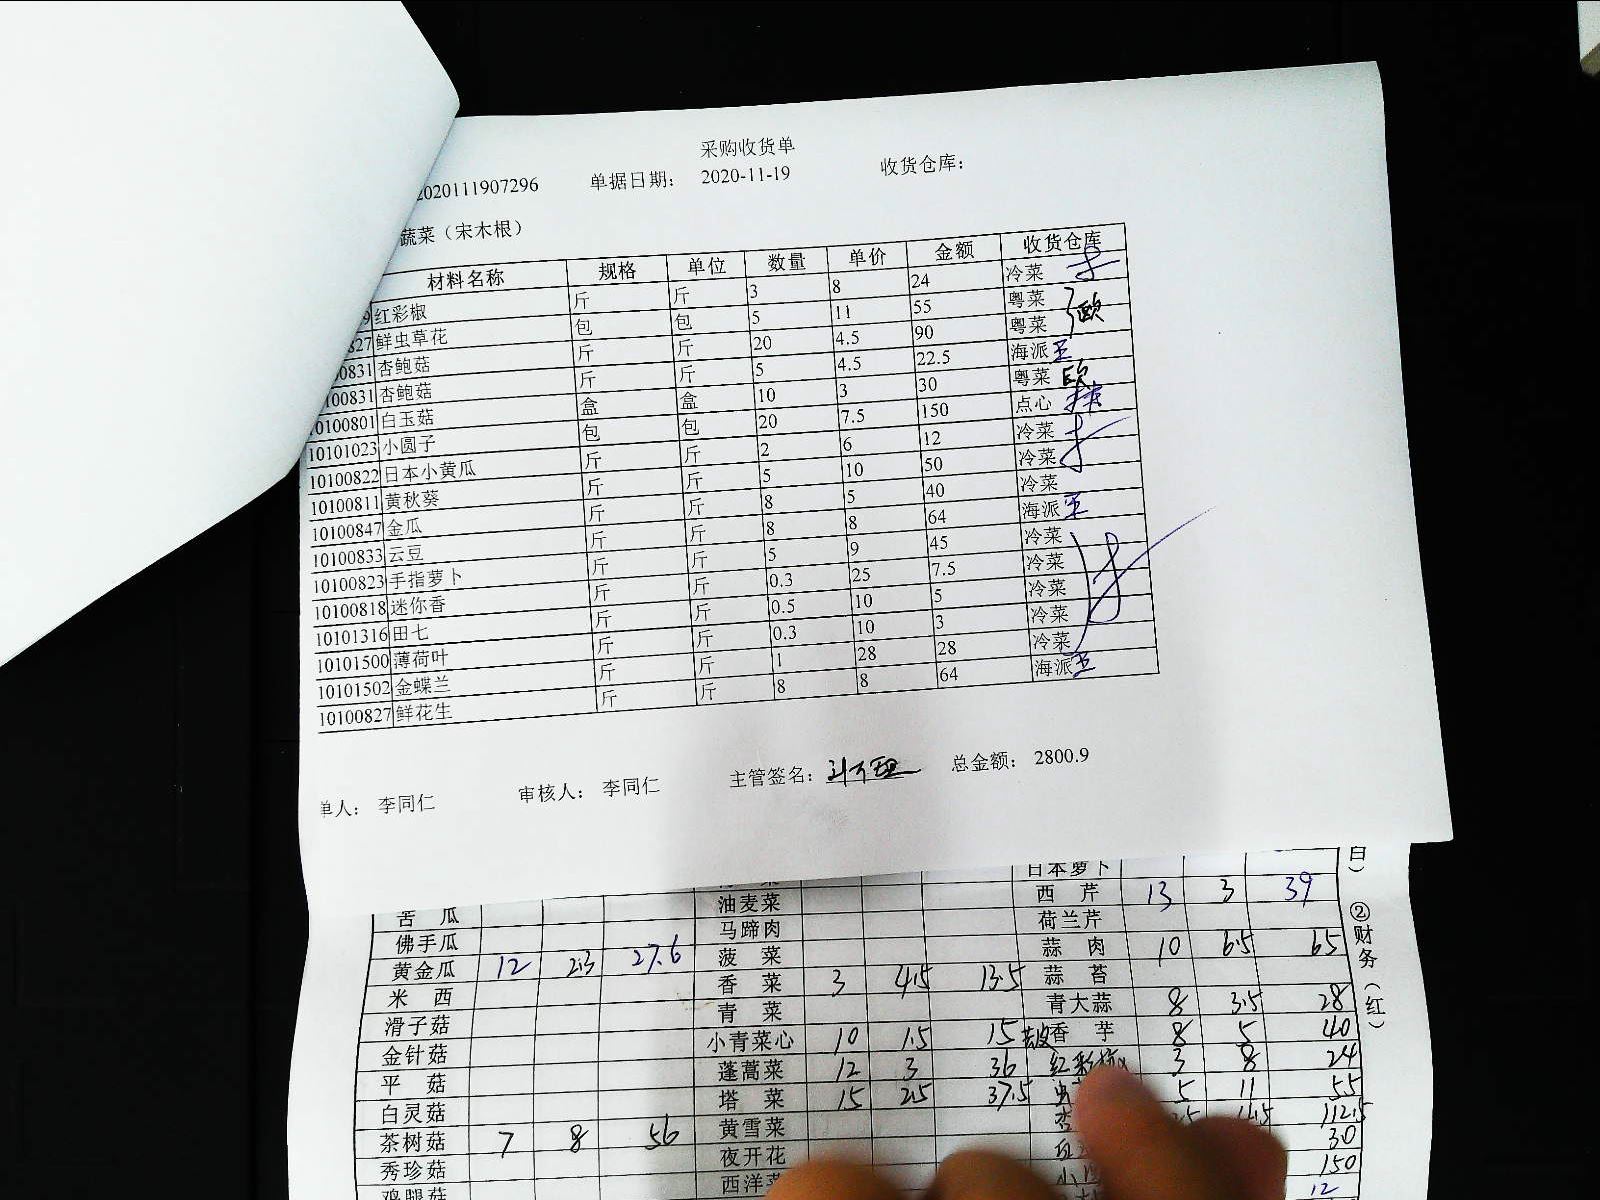 采购收货单
2020111907296 单据日期： 2020-11-19 收货仓库：
蔬菜（宋木根）
材料名称 规格 单位 数量 单价 金额 收货仓库
9 红彩椒 斤 斤 3 8 24 冷菜
827 鲜虫草花 包 包 5 11 55 粤菜 欧
0831 杏鲍菇 斤 斤 20 4.5 90 粤菜
100831 杏鲍菇 斤 斤 5 4.5 22.5 海派 王
10100801 白玉菇 盒 盒 10 3 30 粤菜 欧
10101023 小圆子 包 包 20 7.5 150 点心
10100822 日本小黄瓜 斤 斤 2 6 12 冷菜
10100811 黄秋葵 斤 斤 5 10 50 冷菜
10100847 金瓜 斤 斤 8 5 40 冷菜
10100833 云豆 斤 斤 8 8 64 海派 王
10100823 手指萝卜 斤 斤 5 9 45 冷菜
10100818 迷你香 斤 斤 0.3 25 7.5 冷菜
10101316 田七 斤 斤 0.5 10 5 冷菜
10101500 薄荷叶 斤 斤 0.3 10 3 冷菜
10101502 金蝶兰 斤 斤 1 28 28 冷菜
10100827 鲜花生 斤 斤 8 8 64 海派 王
单人： 李同仁 审核人： 李同仁 主管签名： 总金额： 2800.9
日本萝卜
苦瓜 油麦菜 西芹 13 3 39
佛手瓜 马蹄肉 荷兰芹
黄金瓜 12 2.3 27.6 菠菜 蒜肉 10 6.5 65
米西 香菜 3 4.5 13.5 蒜苔
滑子菇 青菜 青大蒜 8 3.5 28
金针菇 小青菜心 10 1.5 15 香芋 8 5 40
平菇 蓬蒿菜 12 3 36 红彩椒 3 8 24
白灵菇 塔菜 15 2.5 37.5 5 11 55
茶树菇 7 8 56 黄雪菜 杏 4.5 112.5
秀珍菇 夜开花 30
鸡腿菇 西洋菜 小 150
12
白） ②财务（红）